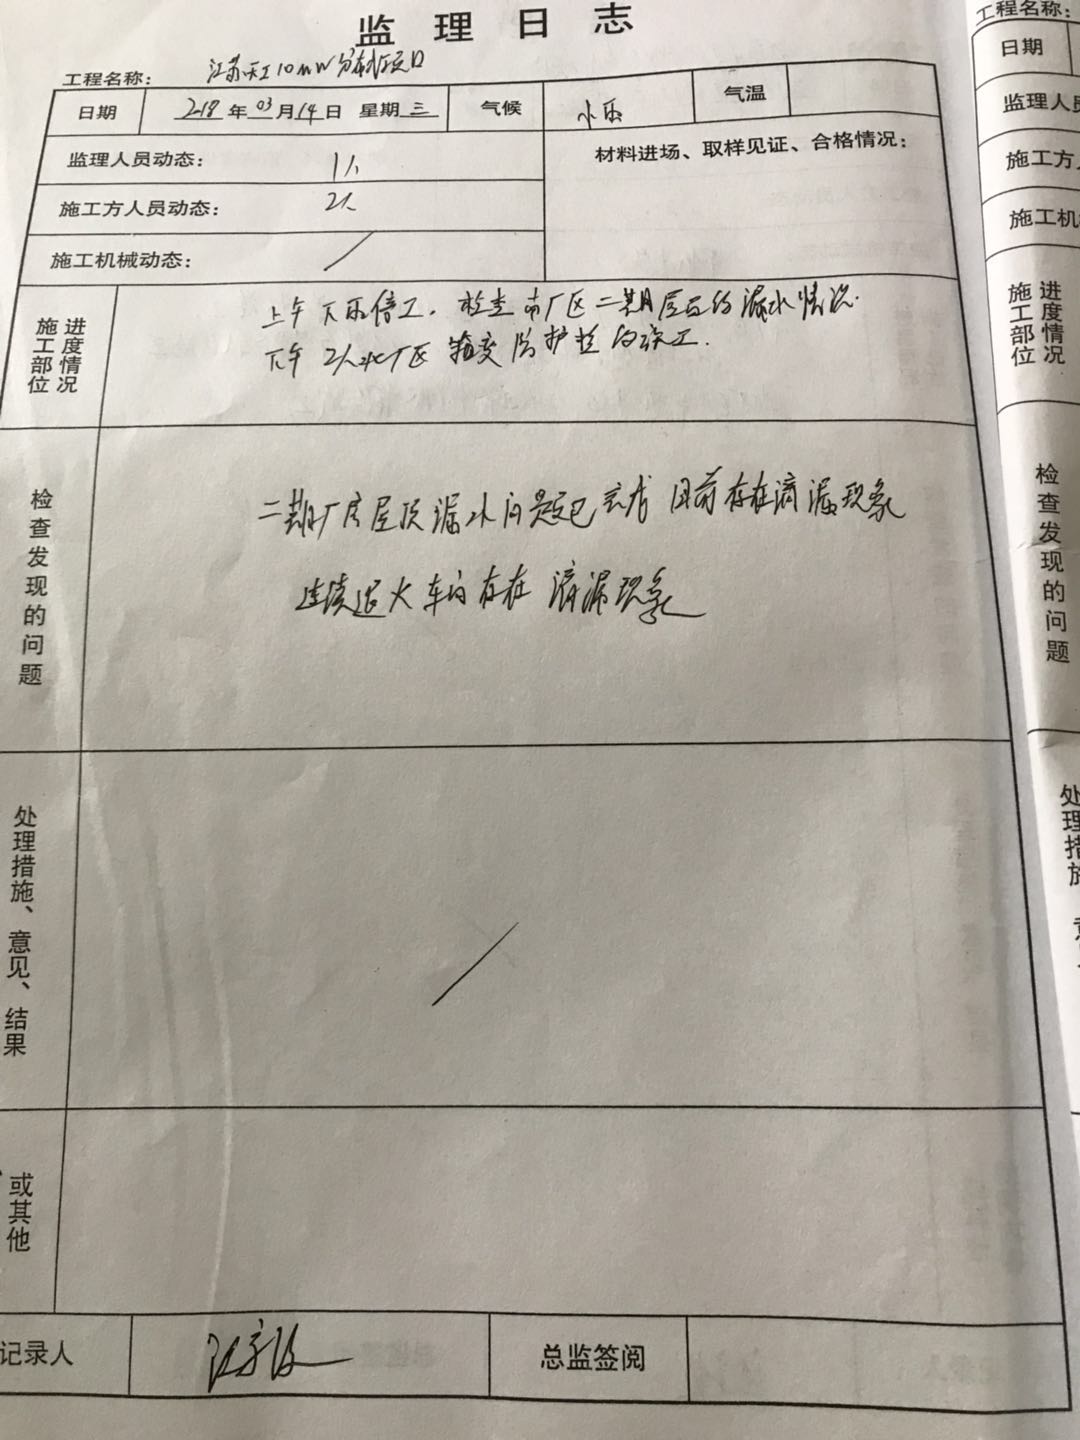 监理日志
工程名称: 江苏天工10MW分布式项目
日期 218年03月14日 星期三 气候 小雨 气温
监理人员动态: 1人 材料进场、取样见证、合格情况:
施工方人员动态: 2人
施工机械动态: /
施工部位 进度情况
上午下雨停工. 检查南厂区二期屋面的漏水情况.
下午 2人 厂区 护栏的施工.
检查发现的问题
二期厂房屋顶漏水问题已 目前存在滴漏现象
连续退火车间存在滴漏现象
处理措施、意见、结果
/
或其他
记录人 总监签阅
工程名称:
日期
监理人员
施工方人
施工机
施工部位 进度情况
检查发现的问题
处理措施